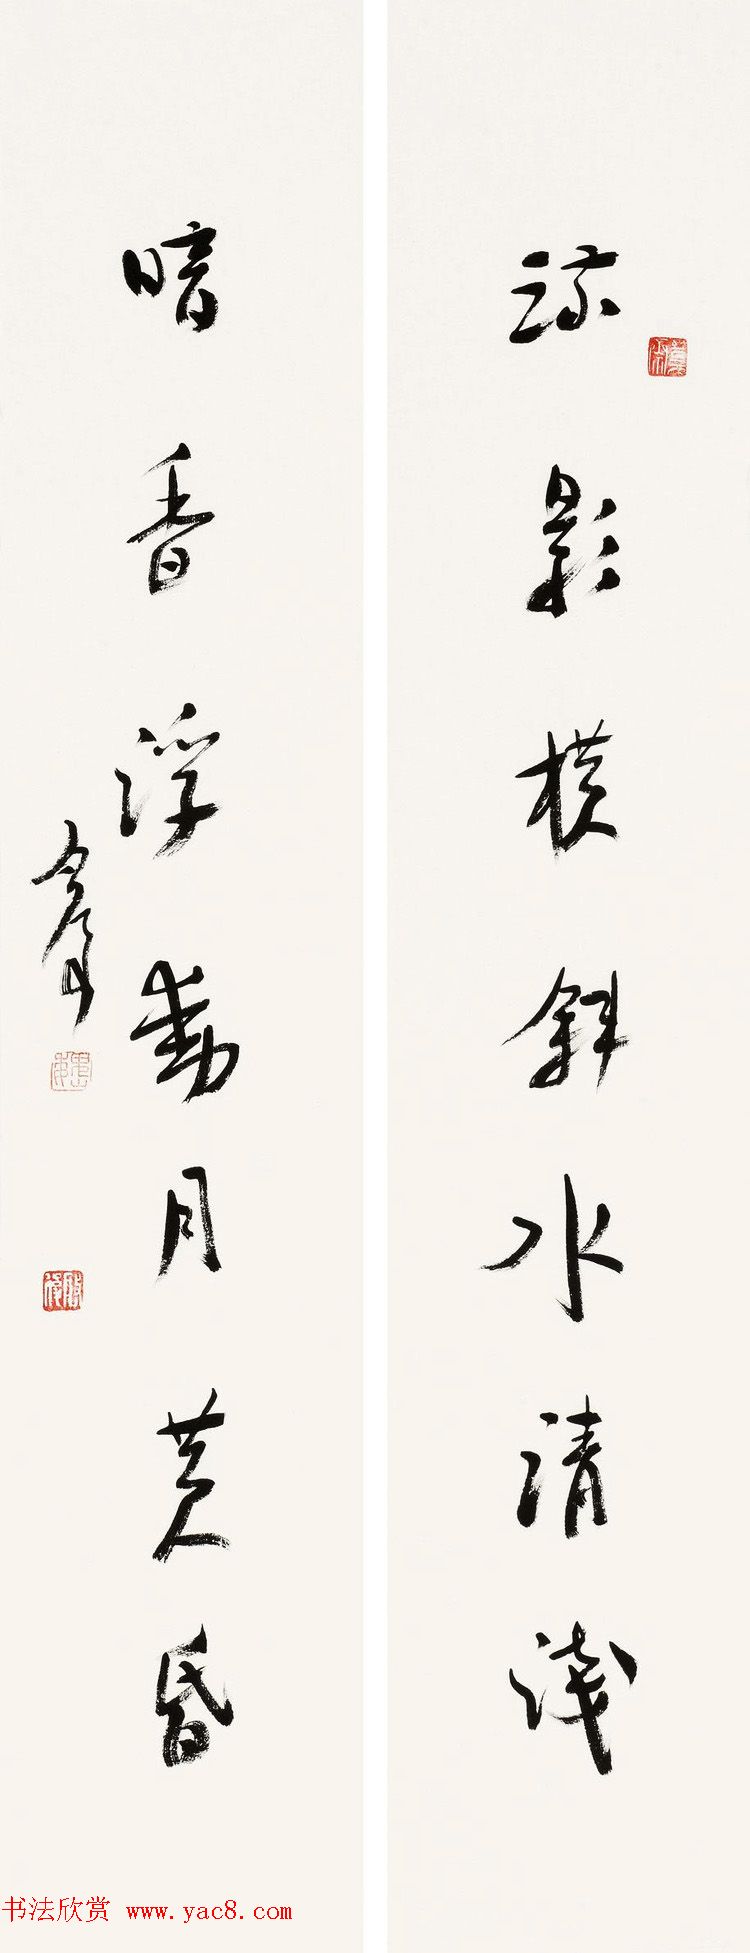 疏影橫斜水清淺
暗香浮動月黃昏
书法欣赏 www.yac8.com